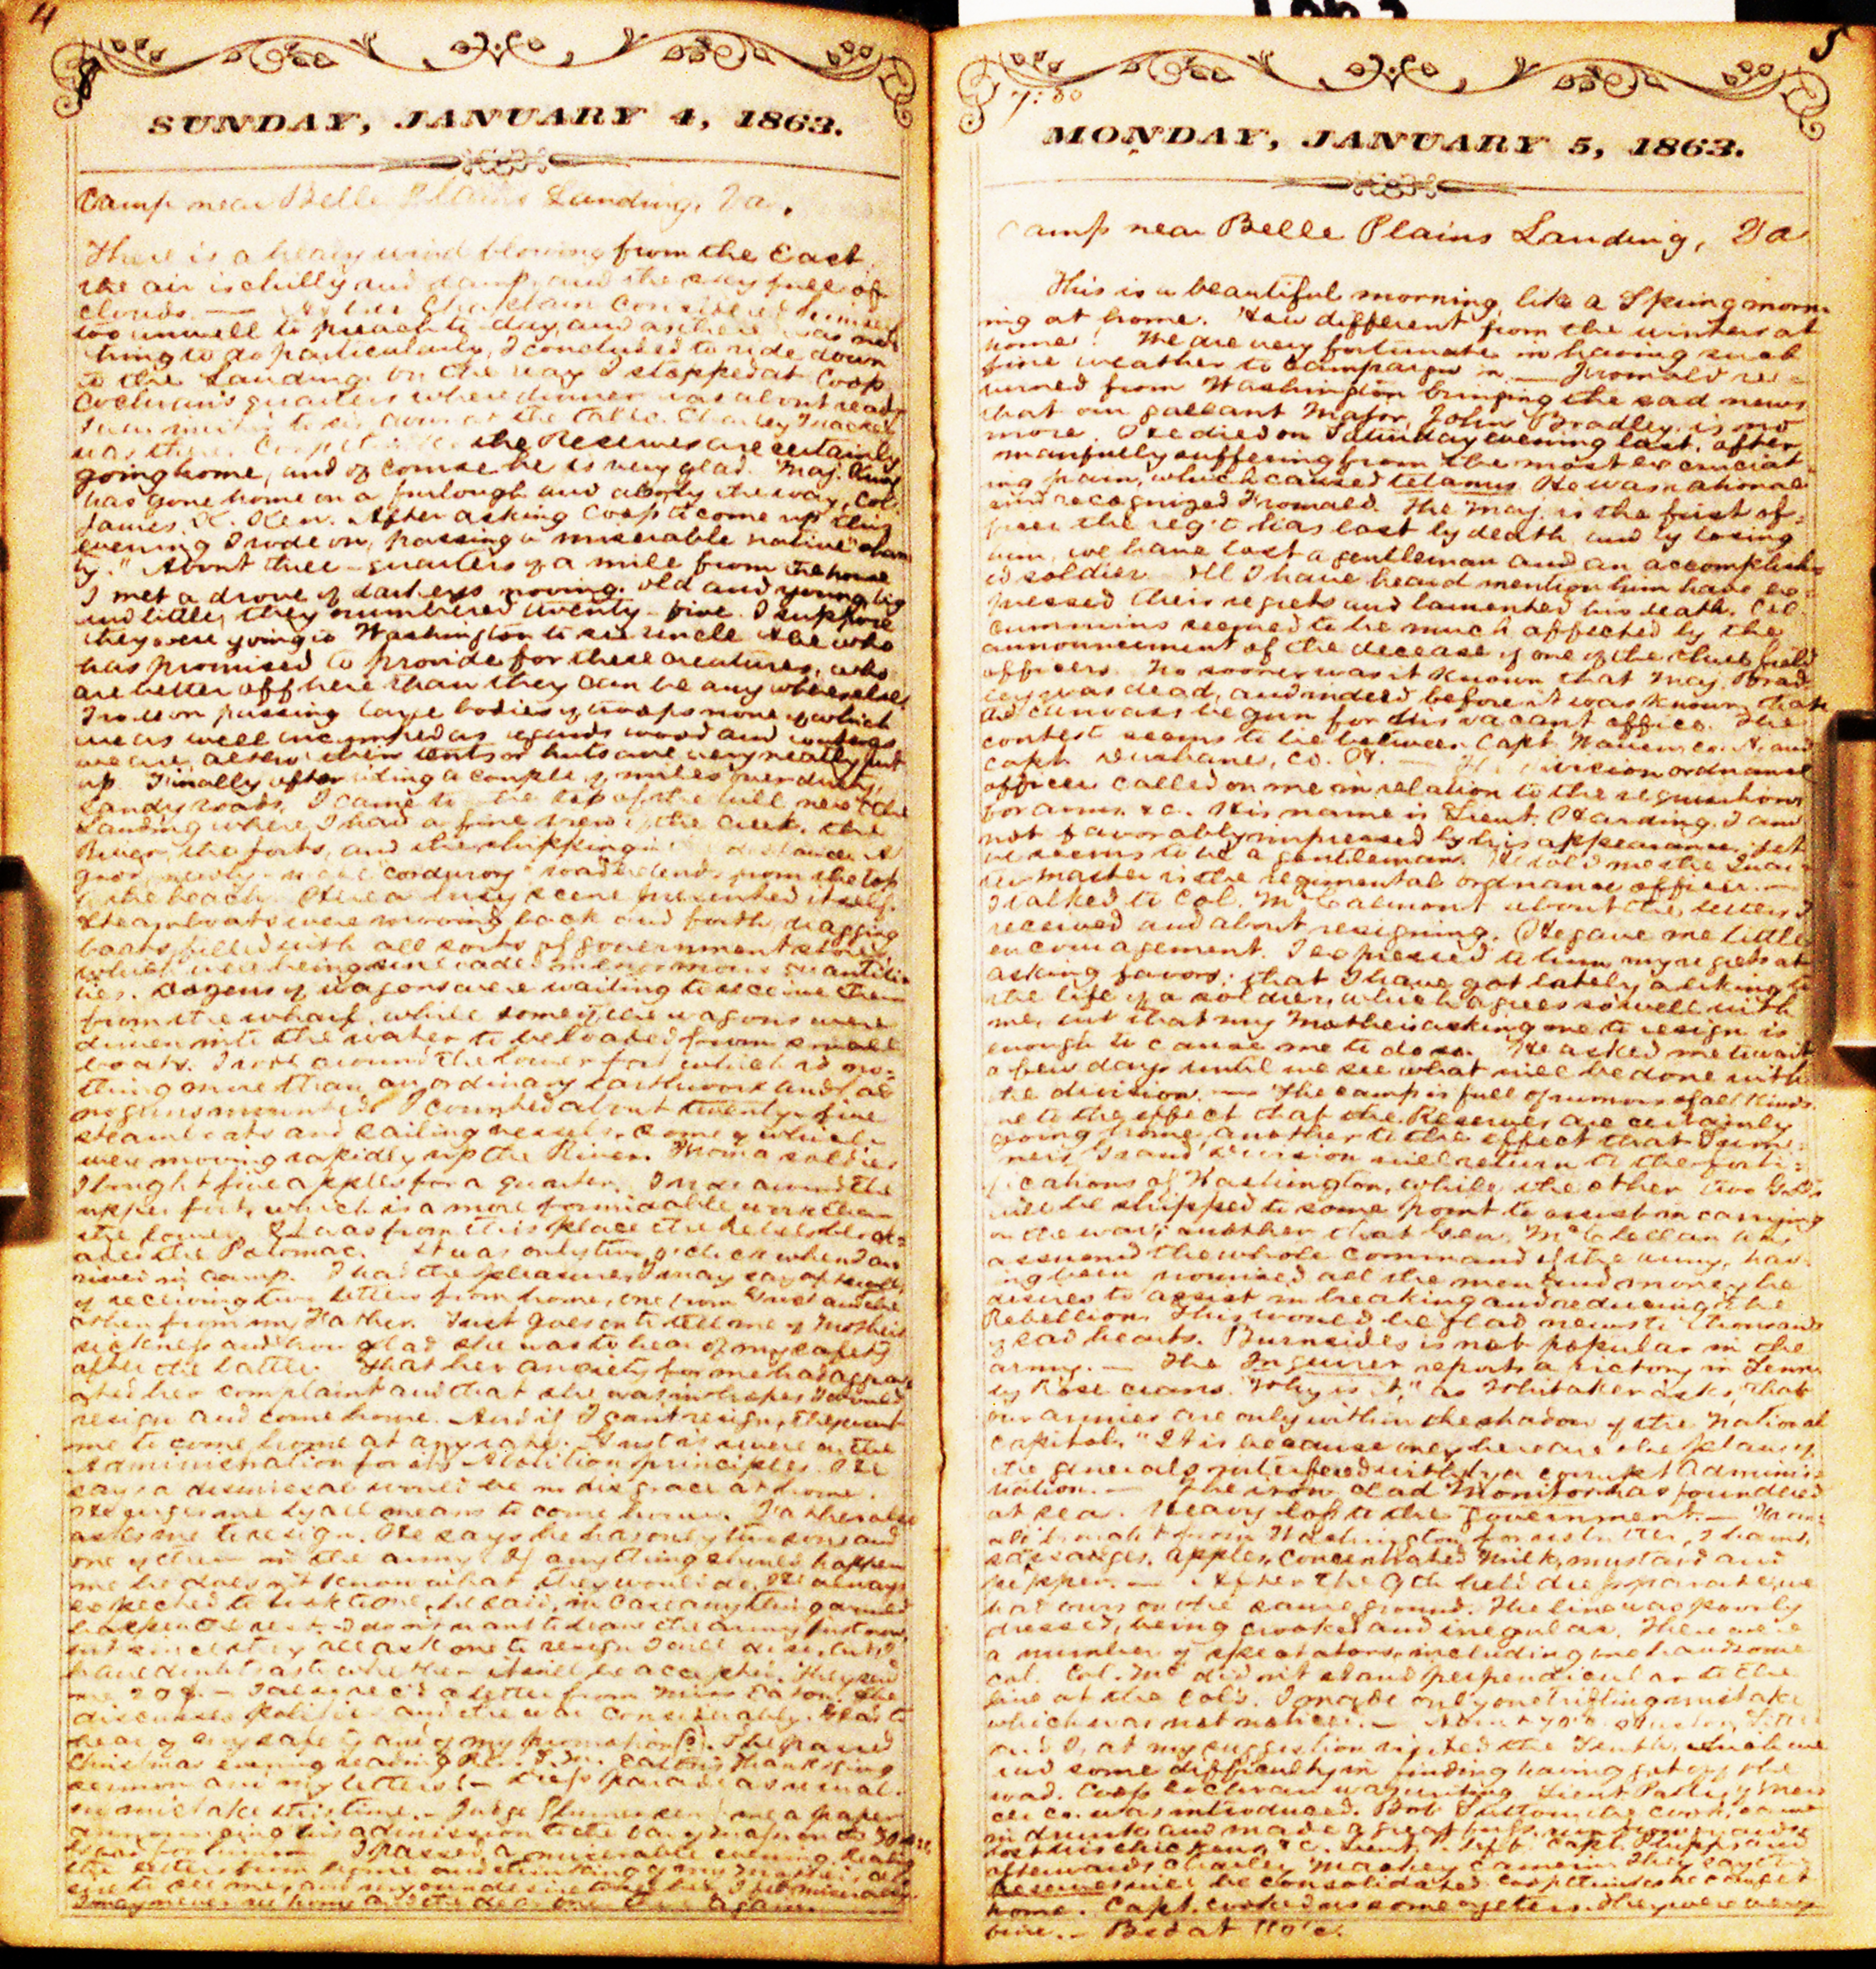 4
SUNDAY, JANUARY 4, 1863.
Camp near Belle Plains Landing, Va.
There is a heavy wind blowing from the East
the air is chilly and damp, and the sky full of
clouds. — As the Chaplain considered himself
too unwell to preach to-day, and as there was no
thing to do particularly, I concluded to ride down
to the Landing. On the way I stopped at Coop
quarters where dinner was about ready
I was invited to sit down at the table. Charley
was there. the Reserves are certainly
going home, and of course he is very glad. Maj.
has gone home on a furlough and by the way, Col.
James After asking Coop to come up this
evening I rode on, passing a miserable native
by." About three-quarters of a mile from the house
I met a drove of darkeys moving. Old and young, big
and little, they numbered twenty-five. I suppose
they were going to Washington to see uncle Abe who
has promised to provide for these creatures, who
are better off here than they can be any where else.
I rode on passing large bodies of troops none of which
are as well as regards wood and
we are, altho' their tents or huts are very neatly put
up. Finally after riding a couple of miles over dusty,
sandy roads, I came to the top of the hill near the
Landing where I had a fine view of the Creek, the
River, the forts, and the shipping in distance. A
good newly-made "corduroy" road descends from the top
to the beach. Here a busy scene presented itself.
Steamboats were moving back and forth, dragging
boats filled with all sorts of government stores
which were being unloaded in enormous quanti
ties. Dozens of wagons were waiting to receive them
from the wharf, while some of the wagons were
driven into the water to be loaded from small
boats. I rode around the lower fort which is no-
thing more than an ordinary earthwork and has
no guns mounted. I counted about twenty-five
steamboats and sailing vessels, some of which
were moving rapidly up the River. From a soldier
I bought five apples for a quarter. I rode around the
upper fort, which is a more formidable work than
the lower. It was from this place the Rebels block-
aded the Potomac. It was only two o'clock when I ar
rived in camp. I had the pleasure, I may say
of receiving two letters from home, one from Gust and the
other from my Father. Gust goes on to tell me of Mother's
sickness and how glad she was to hear of my safety
after the battle. That her anxiety for me had aggrav
ated her complaint and that she was in hopes I would
resign and come home. And if I can't resign, they want
me to come home at any rate. Gust is severe on the
Administration for its Abolition principles. He
says a dismissal would be no disgrace at home.
He urges me by all means to come home. Father also
asks me to resign. He says he has only two sons and
one of them in the army. If anything should happen
me he does n't know what they would do. He always
expected to said, in case anything
I don't want to leave the army just now,
but since they all ask me to resign I will do so, but I
have doubts as to whether it will be accepted. They send
me — I also rec'd a letter from Miss Eaton. She
discusses politics and the war considerably. Glad to
hear of my safety and of my promotion(?). She passed
Christmas evening reading Rev. Eaton's Thanksgiving
sermon and my letters! — Dress parade as usual.
no mistake this time. — Judge sent me a paper
announcing his admission to the bar
I passed a miserable evening, reading
the letters from home and thinking of my Mother's
to see me, and
I may never see home and the dear ones there again.
5
7:30
MONDAY, JANUARY 5, 1863.
Camp near Belle Plains Landing, Va
This is a beautiful morning, like a Spring morn-
ing at home. How different from the winters at
home! We are very fortunate in having such
fine weather to campaign in. — Fromald re-
turned from Washington bringing the sad news
that our gallant Major, John Bradley is no
more. He died on Saturday evening last, after
manfully suffering from the most excruciat-
ing pain, which caused tetanus. He was rational
and recognized Fromald. The Maj. is the first of-
ficer the reg't has lost by death and by losing
him, we have lost a gentleman and an accomplish-
ed soldier. All I have heard mention him have ex-
pressed their regrets and lamented his death. Col.
Cummins seemed to be much affected by the
announcement of the decease of one of the three field
officers. No sooner was it known that Maj. Brad-
ley was dead, and indeed before it was known, than
the canvass begun for this vacant office. The
contest seems to be between Capt. Warren, Co. A. and
Capt. Dushane, Co. H. — The division ordnance
officer called on me in relation to the requisitions
for arms, &c. His name is Lieut. Harding. I am
not favorably impressed by his appearance, yet
he seems to be a gentleman. He told me the Quar-
ter master is the regimental ordnance officer. —
I talked to Col. McCalmont about the letters I
received and about resigning. He gave me little
encouragement. I expressed to him my regrets at
asking favors; that I have got lately a liking to
the life of a soldier, which agrees so well with
me, but that my Mother's asking me to resign is
enough to cause me to do so. He asked me to wait
a few days until we see what will be done with
the division. — The camp is full of rumors of all kinds.
one to the effect that the Reserves are certainly
going home, another to the effect that Sum-
ner's Grand Division will return to the forti-
fications of Washington, while the other two G.D's
will be shipped to some point to assist in carrying
on the war; another that Gen. McClellan has
assumed the whole command of the army, hav-
ing been promised all the men and money he
desires to assist in breaking and reducing the
Rebellion. This would be glad news to thousands
of sad hearts. Burnsides is not popular in the
army. — The Inquirer reports a victory in Tenn.
by Rosecrans. "Why is it," as Whitaker asks, "that
our armies are only within the shadow of the National
Capitol." It is because only here are the plans of
the generals interfered with by a corrupt Adminis-
tration. — The iron clad Monitor has foundered
at sea. Heavy loss to the Government. — From-
ald brought from Washington for us butter, 2 hams,
sausages, apples, concentrated milk, mustard and
pepper. — After the 9th held dress parade, we
had ours on the same ground. The line was poorly
dressed, being crooked and irregular. There were
a number of spectators, including one handsome
gal. Col. Mc did n't stand perpendicular to the
line at the Col's. I made only one trifling mistake
which was not noticed. —
and I, at my suggestion visited the Tenth, which we
had some difficulty in finding having got off the
road. Coop was writing. Lieut. of Mer
cer Co. was introduced. Bob the cook, came
in drunk and made a great fuss
lost his chickens, &c. Lieut. left. Capt. and
afterwards Charley Mackey came in. They say the
Reserves will be consolidated. Coop thinks he can get
home. Capt. cooked us some oysters. They were very
fine. — Bed at 11 o'c.